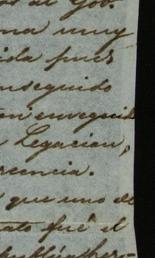 na muy
ida pues
nseguido
en enseguida
Legacion,
rencia.
que uno de
ato fué el